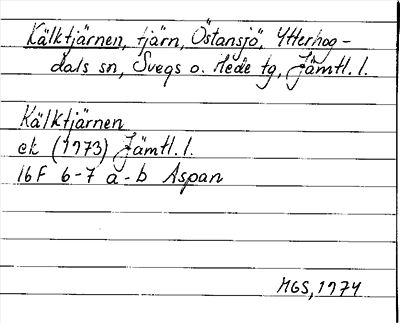 Kälktjärnen, tjärn, Östansjö, Ytterhog-
dals sn, Svegs o. Hede tg, Jämtl. l.
Kälktjärnen
ek (1973) Jämtl. l.
16F 6-7 a-b Aspan
MGS, 1974